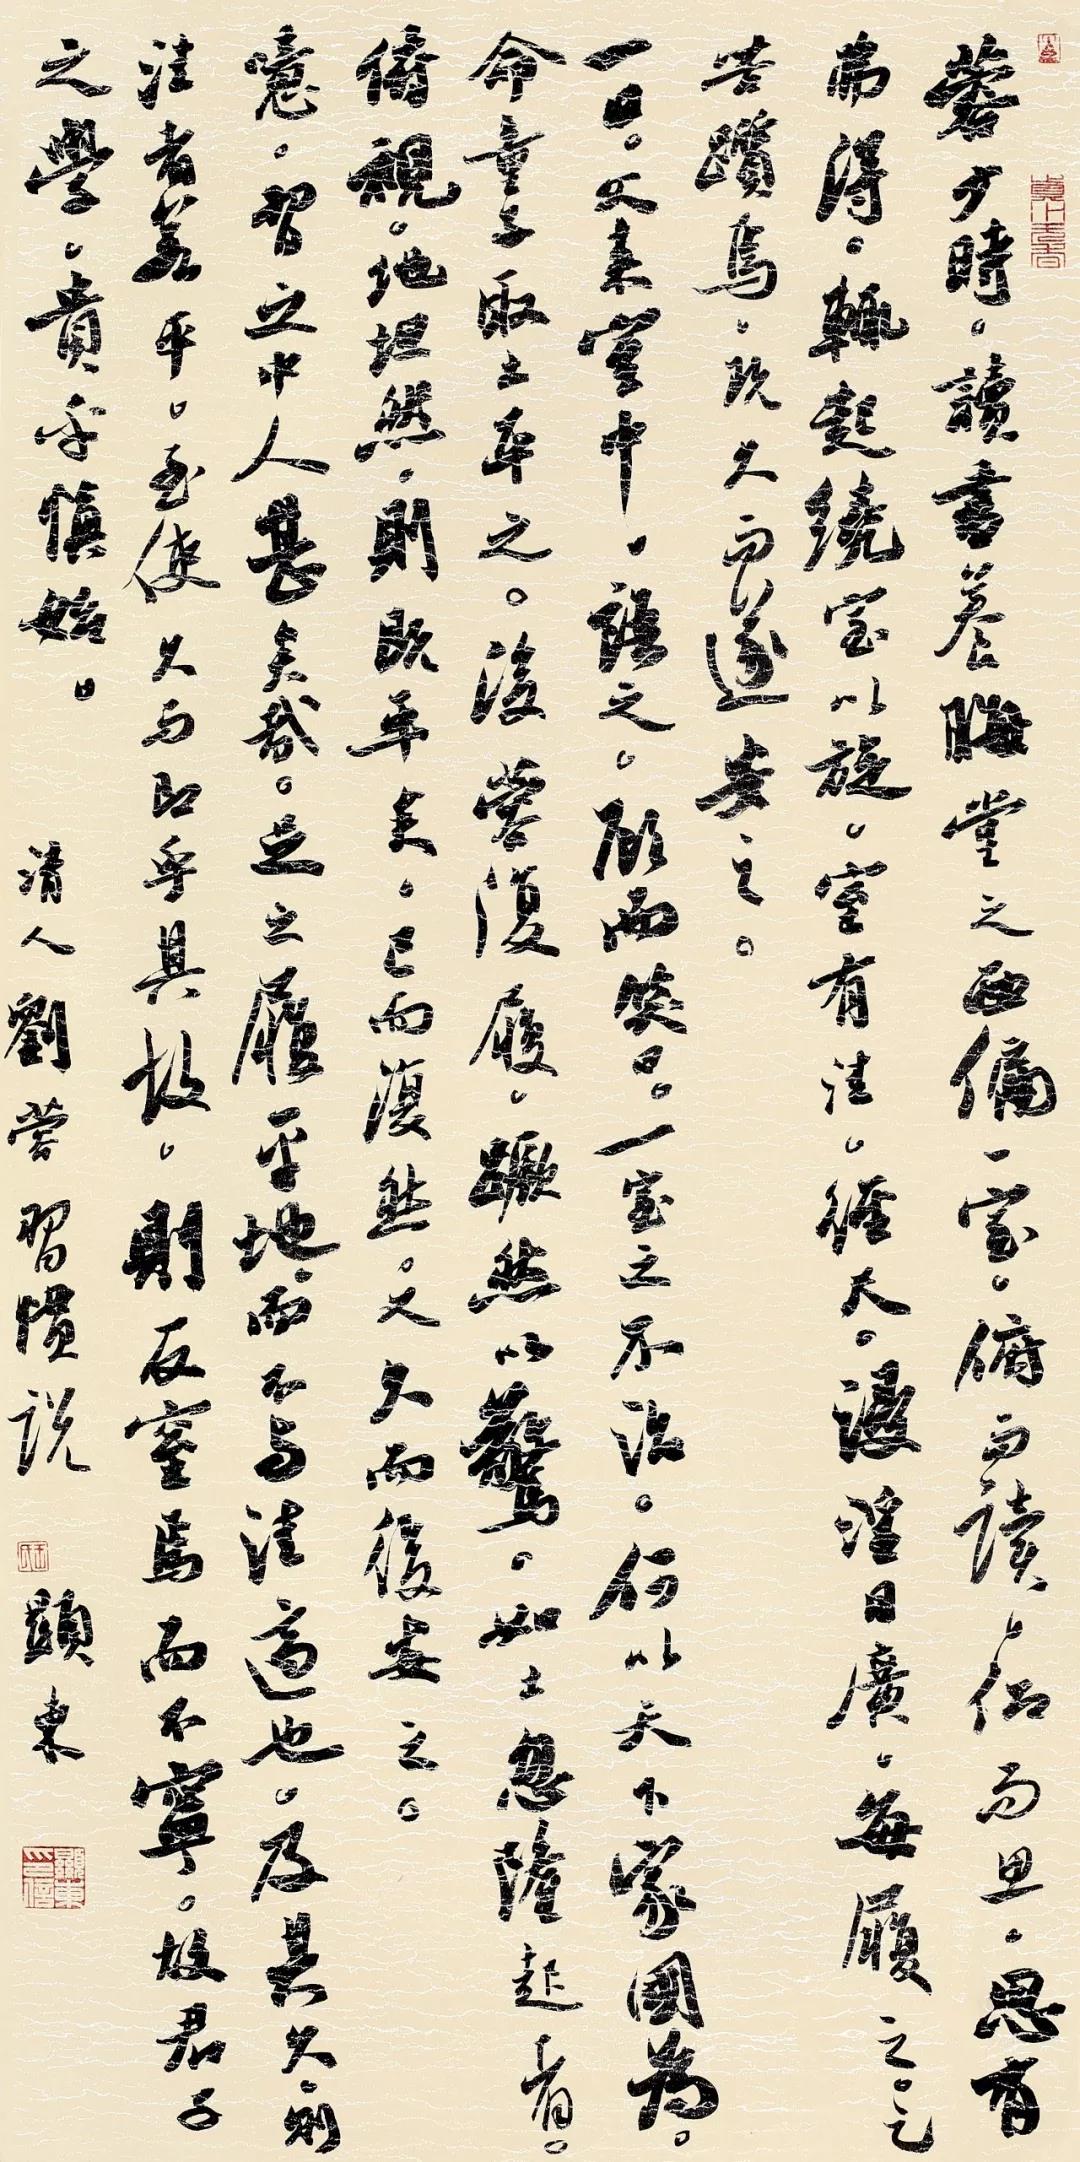 蓉少時。讀書養晦堂之西偏一室。俯而讀，仰而思，思有
弗得。輒起繞室以旋。室有洼。徑尺。浸淫日廣，每履之。足
苦躓焉，既久而遂安之。
一日。父来室中，語之。顧而笑曰。一室之不治。何以天下家國為。
命童子取土平之。後蓉復履，蹶然以驚。如土忽隆起者。
俯視。地坦然，則既平矣，已而復然。又久而後安之。
噫。習之中人甚矣哉。足之履平地而不與洼適也。及其久則
洼者若平。至使久而即乎其故。則反窒焉而不寧。故君子
之學。貴乎慎始。 清人劉蓉習慣説 顯東
顯東印信